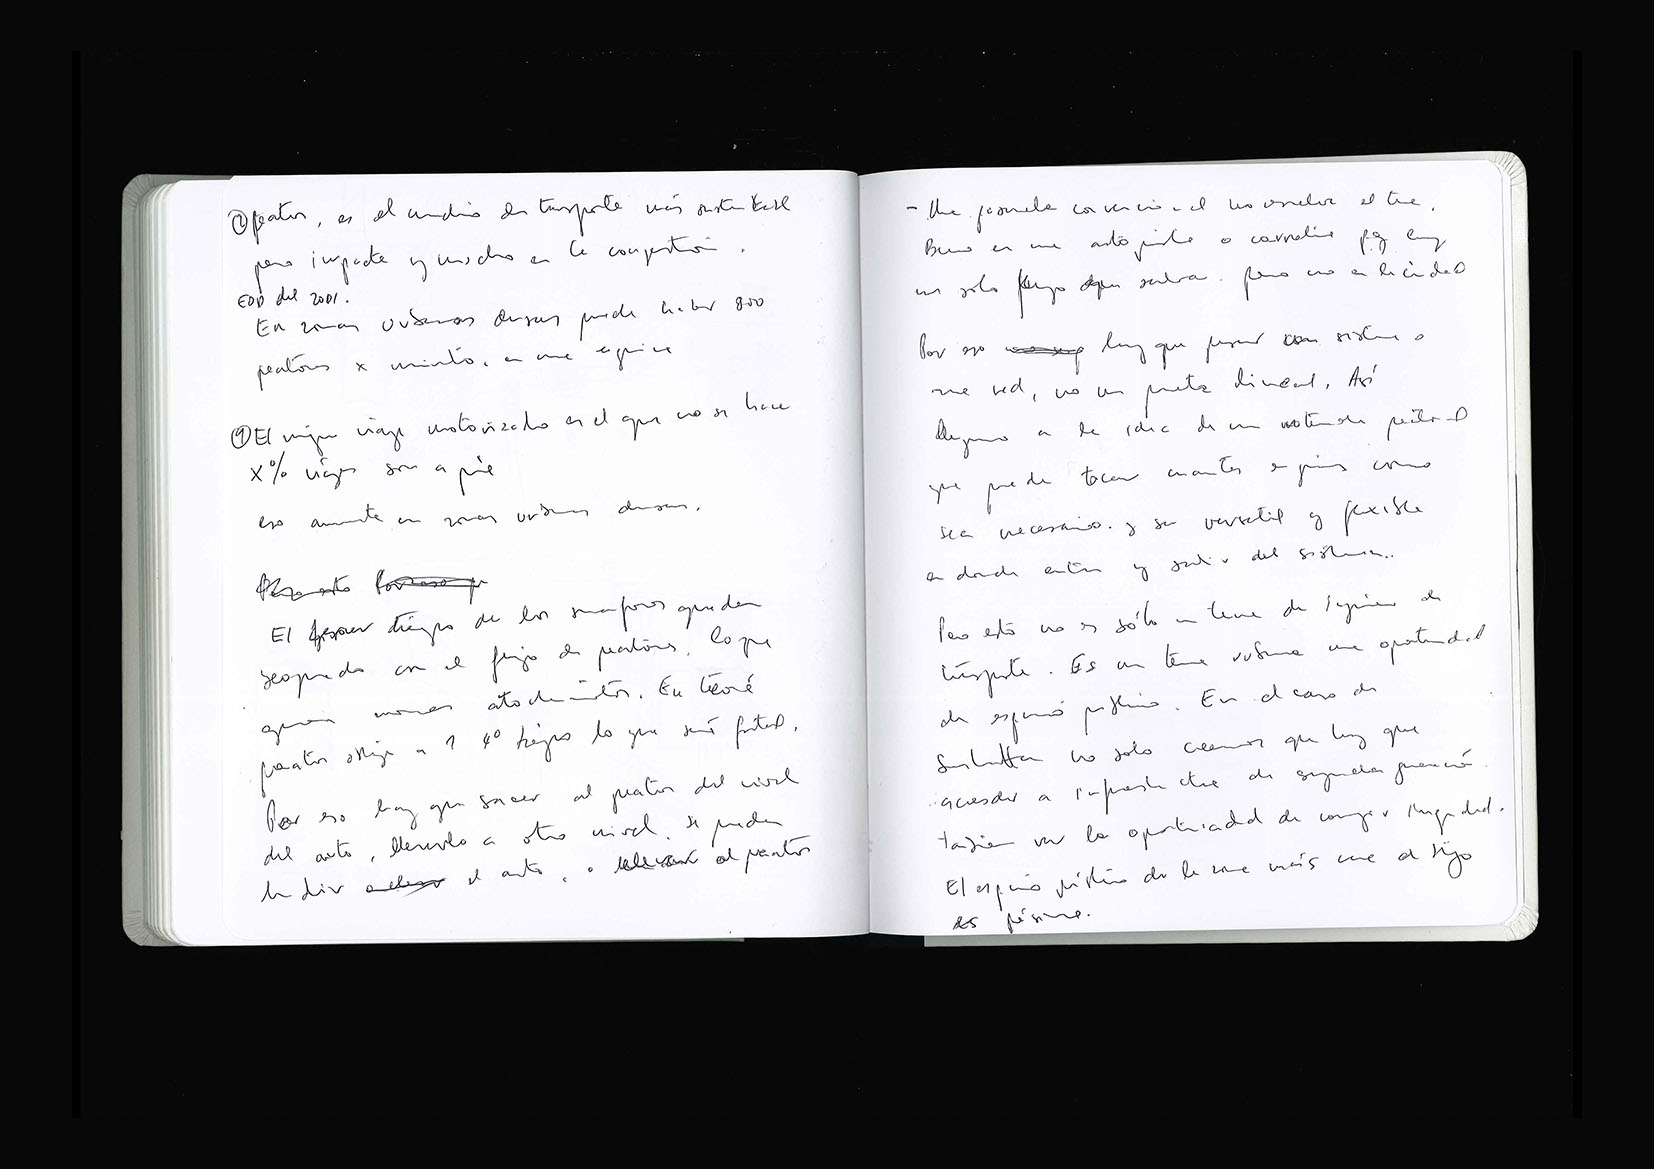 ② peatón, es el medio de transporte más sustentable
pero impacta y mucho en la congestión.
EOD del 2001.
En zonas urbanas densas puede haber 800
peatones x minuto, en una esquina
① El mejor viaje motorizado es el que no se hace
X% viajes son a pie
eso aumenta en zonas urbanas densas.
Por eso
El tiempo de los semáforos queda
con el flujo de peatones, lo que
genera En teoría
peatón obliga a 1 4º tiempo lo que será fatal.
Por eso hay que sacar al peatón del nivel
del auto, llevarlo a otro nivel. se puede
hundir el auto, o elevar al peatón
- Una pasarela convencional no resuelve el tema.
Bueno en una autopista o carretera pq hay
un solo flujo que salvar. pero no en la ciudad
Por eso hay que pensar sistema o
una red, no un puente lineal. Así
llegamos a la idea de un peatonal
que puede tocar cuantas esquinas como
sea necesario. y ser versátil y flexible
en donde entrar y salir del sistema.
Pero esto no es sólo un tema de ingeniería de
transporte. Es un tema urbano una oportunidad
de espacio público. En el caso de
no solo creemos que hay que
acceder a infraestructura de segunda generación.
también ver la oportunidad de corregir inequidad.
El espacio público de la zona más
es pésimo.